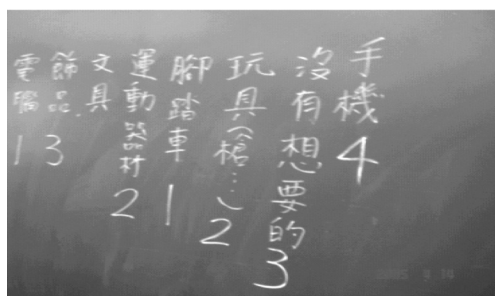 手機 4
沒有想要的 3
玩具(槍…) 2
腳踏車 1
運動器材 2
文具
飾品 3
電腦 1